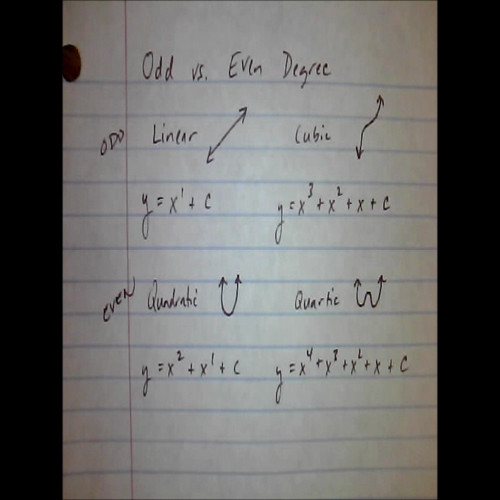 Odd vs. Even Degree
ODD Linear Cubic
y = x¹ + c y = x³ + x² + x + c
EVEN Quadratic Quartic
y = x² + x¹ + c y = x⁴ + x³ + x² + x + c